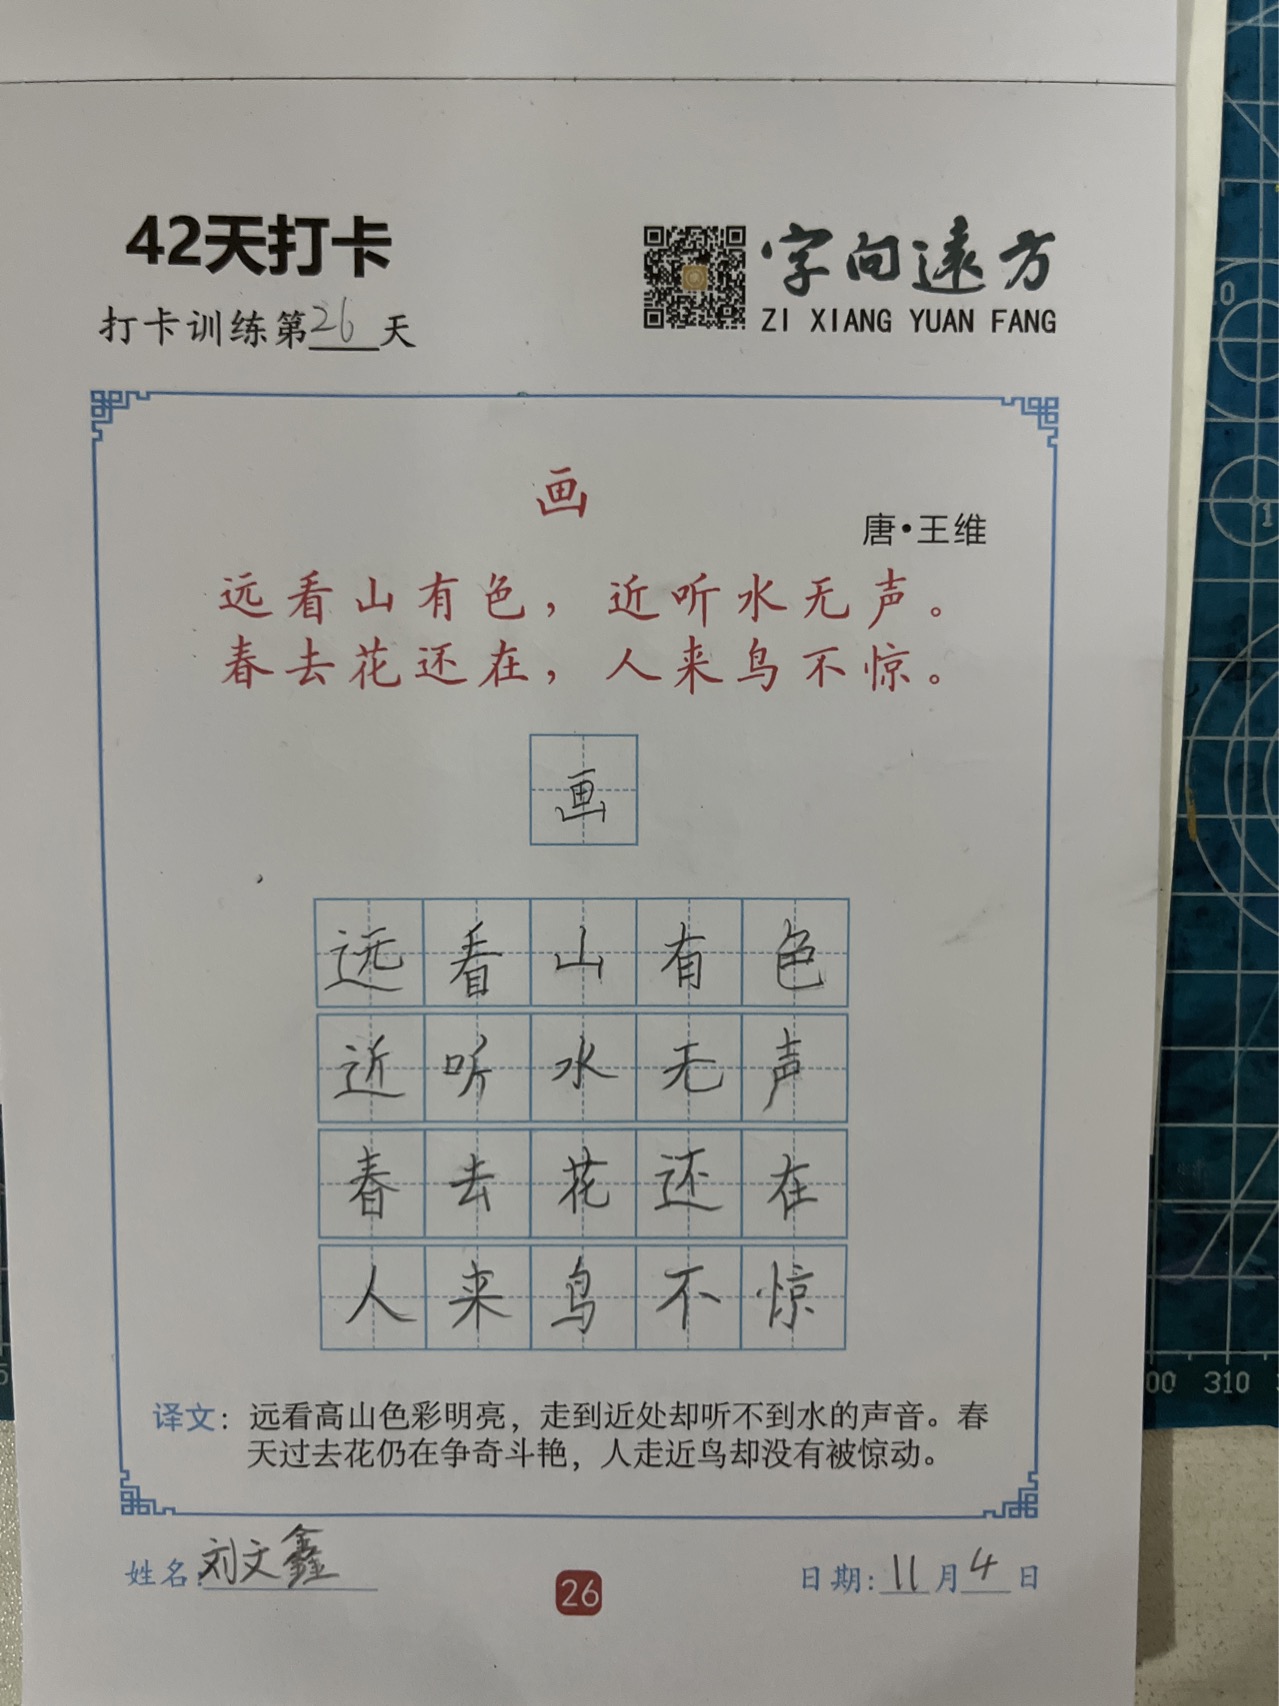 42天打卡
字向遠方
打卡训练第26天
ZI XIANG YUAN FANG
画
唐·王维
远看山有色，近听水无声。
春去花还在，人来鸟不惊。
画
远看山有色
近听水无声
春去花还在
人来鸟不惊
译文：远看高山色彩明亮，走到近处却听不到水的声音。春
天过去花仍在争奇斗艳，人走近鸟却没有被惊动。
姓名：刘文鑫
26
日期：11月4日
0
1
5
00 310